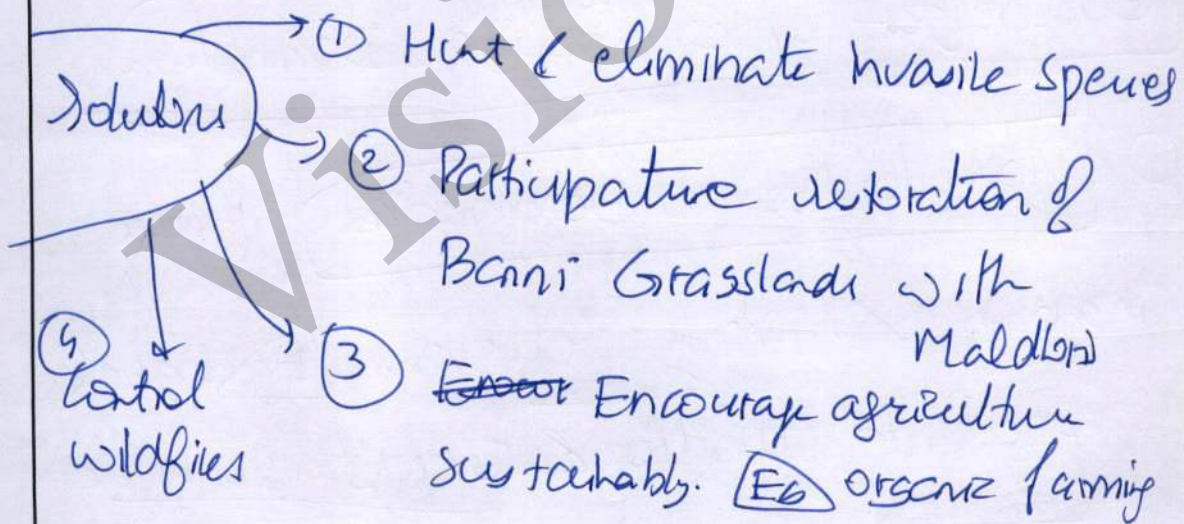 Solutions
① Hunt & eliminate invasive species
② Participative restoration of
Banni Grasslands with
Maldharis
③ Encourage agriculture
sustainably. Eg organic farming
④ Control
wildfires
Visio